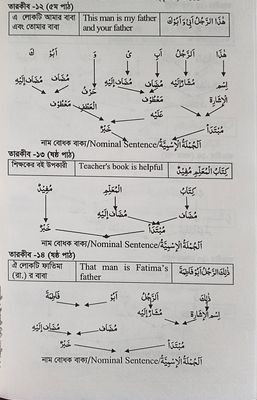 তারকীব -১২ (৫ম পাঠ)
এ লোকটি আমার বাবা এবং তোমার বাবা
This man is my father and your father
هٰذَا الرَّجُلُ اَبِىْ وَاَبُوْكَ
هٰذَا الرَّجُلُ اَبِ ىْ وَ اَبُوْ كَ
اِسْمُ الْاِشَارَةِ مُشَارٌ اِلَيْهِ مُضَافٌ مُضَافٌ اِلَيْهِ حَرْفُ الْعَطْفِ مُضَافٌ مُضَافٌ اِلَيْهِ
مَعْطُوْفٌ عَلَيْهِ مَعْطُوْفٌ
مُبْتَدَأٌ خَبَرٌ
নাম বোধক বাক্য/Nominal Sentence/اَلْجُمْلَةُ الْاِسْمِيَّةُ
তারকীব -১৩ (ষষ্ঠ পাঠ)
শিক্ষকের বই উপকারী
Teacher's book is helpful
كِتَابُ الْمُعَلِّمِ مُفِيْدٌ
كِتَابُ الْمُعَلِّمِ مُفِيْدٌ
مُضَافٌ مُضَافٌ اِلَيْهِ
مُبْتَدَأٌ خَبَرٌ
নাম বোধক বাক্য/Nominal Sentence/اَلْجُمْلَةُ الْاِسْمِيَّةُ
তারকীব -১৪ (ষষ্ঠ পাঠ)
ঐ লোকটি ফাতিমা (রা.) র বাবা
That man is Fatima's father
ذٰلِكَ الرَّجُلُ اَبُوْ فَاطِمَةَ
ذٰلِكَ الرَّجُلُ اَبُوْ فَاطِمَةَ
اِسْمُ الْاِشَارَةِ مُشَارٌ اِلَيْهِ مُضَافٌ مُضَافٌ اِلَيْهِ
مُبْتَدَأٌ خَبَرٌ
নাম বোধক বাক্য/Nominal Sentence/اَلْجُمْلَةُ الْاِسْمِيَّةُ